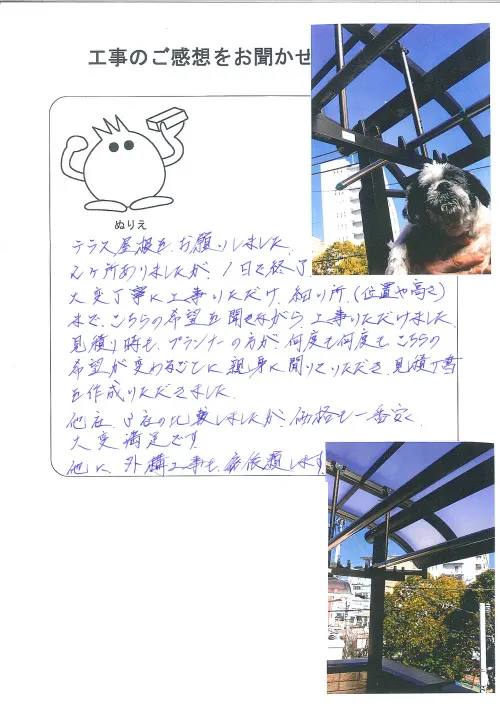 工事のご感想をお聞かせ
ぬりえ
テラス屋根を、お願いしました。
2ヶ所ありましたが、1日で終了
大変丁寧に工事いただけ、細い所、(位置や高さ)
まで、こちらの希望を聞きながら、工事いただけました。
見積り時も、プランナーの方が、何度も何度も、こちらの
希望が変わるごとに、親身に聞いてくださり、見積り書
を作成いただきました。
他社、3社の比較しましたが、価格も一番安く、
大変満足です
他に、外構工事も、依頼します